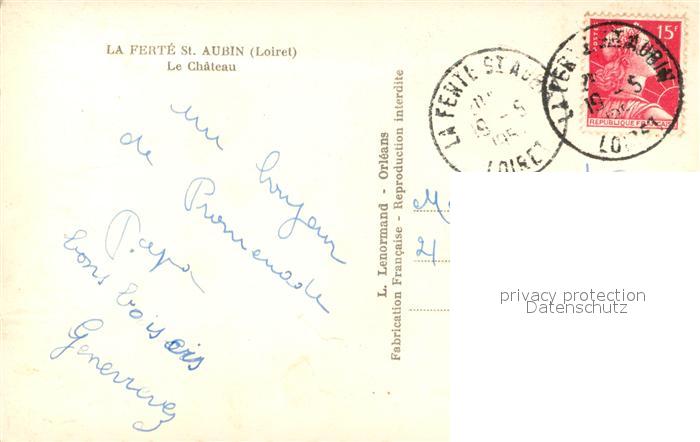 LA FERTÉ St. AUBIN (Loiret)
Le Château
un bonjour
de Promenade
Papa
bons baisers
Genevieve
L. Lenormand - Orléans
Fabrication Française - Reproduction interdite
LA FERTE ST AUBIN
19 -5
LOIRET
POSTES 15F
REPUBLIQUE FRANÇAISE
LA FERTE ST AUBIN
19 -5
LOIRET
M
21
privacy protection
Datenschutz